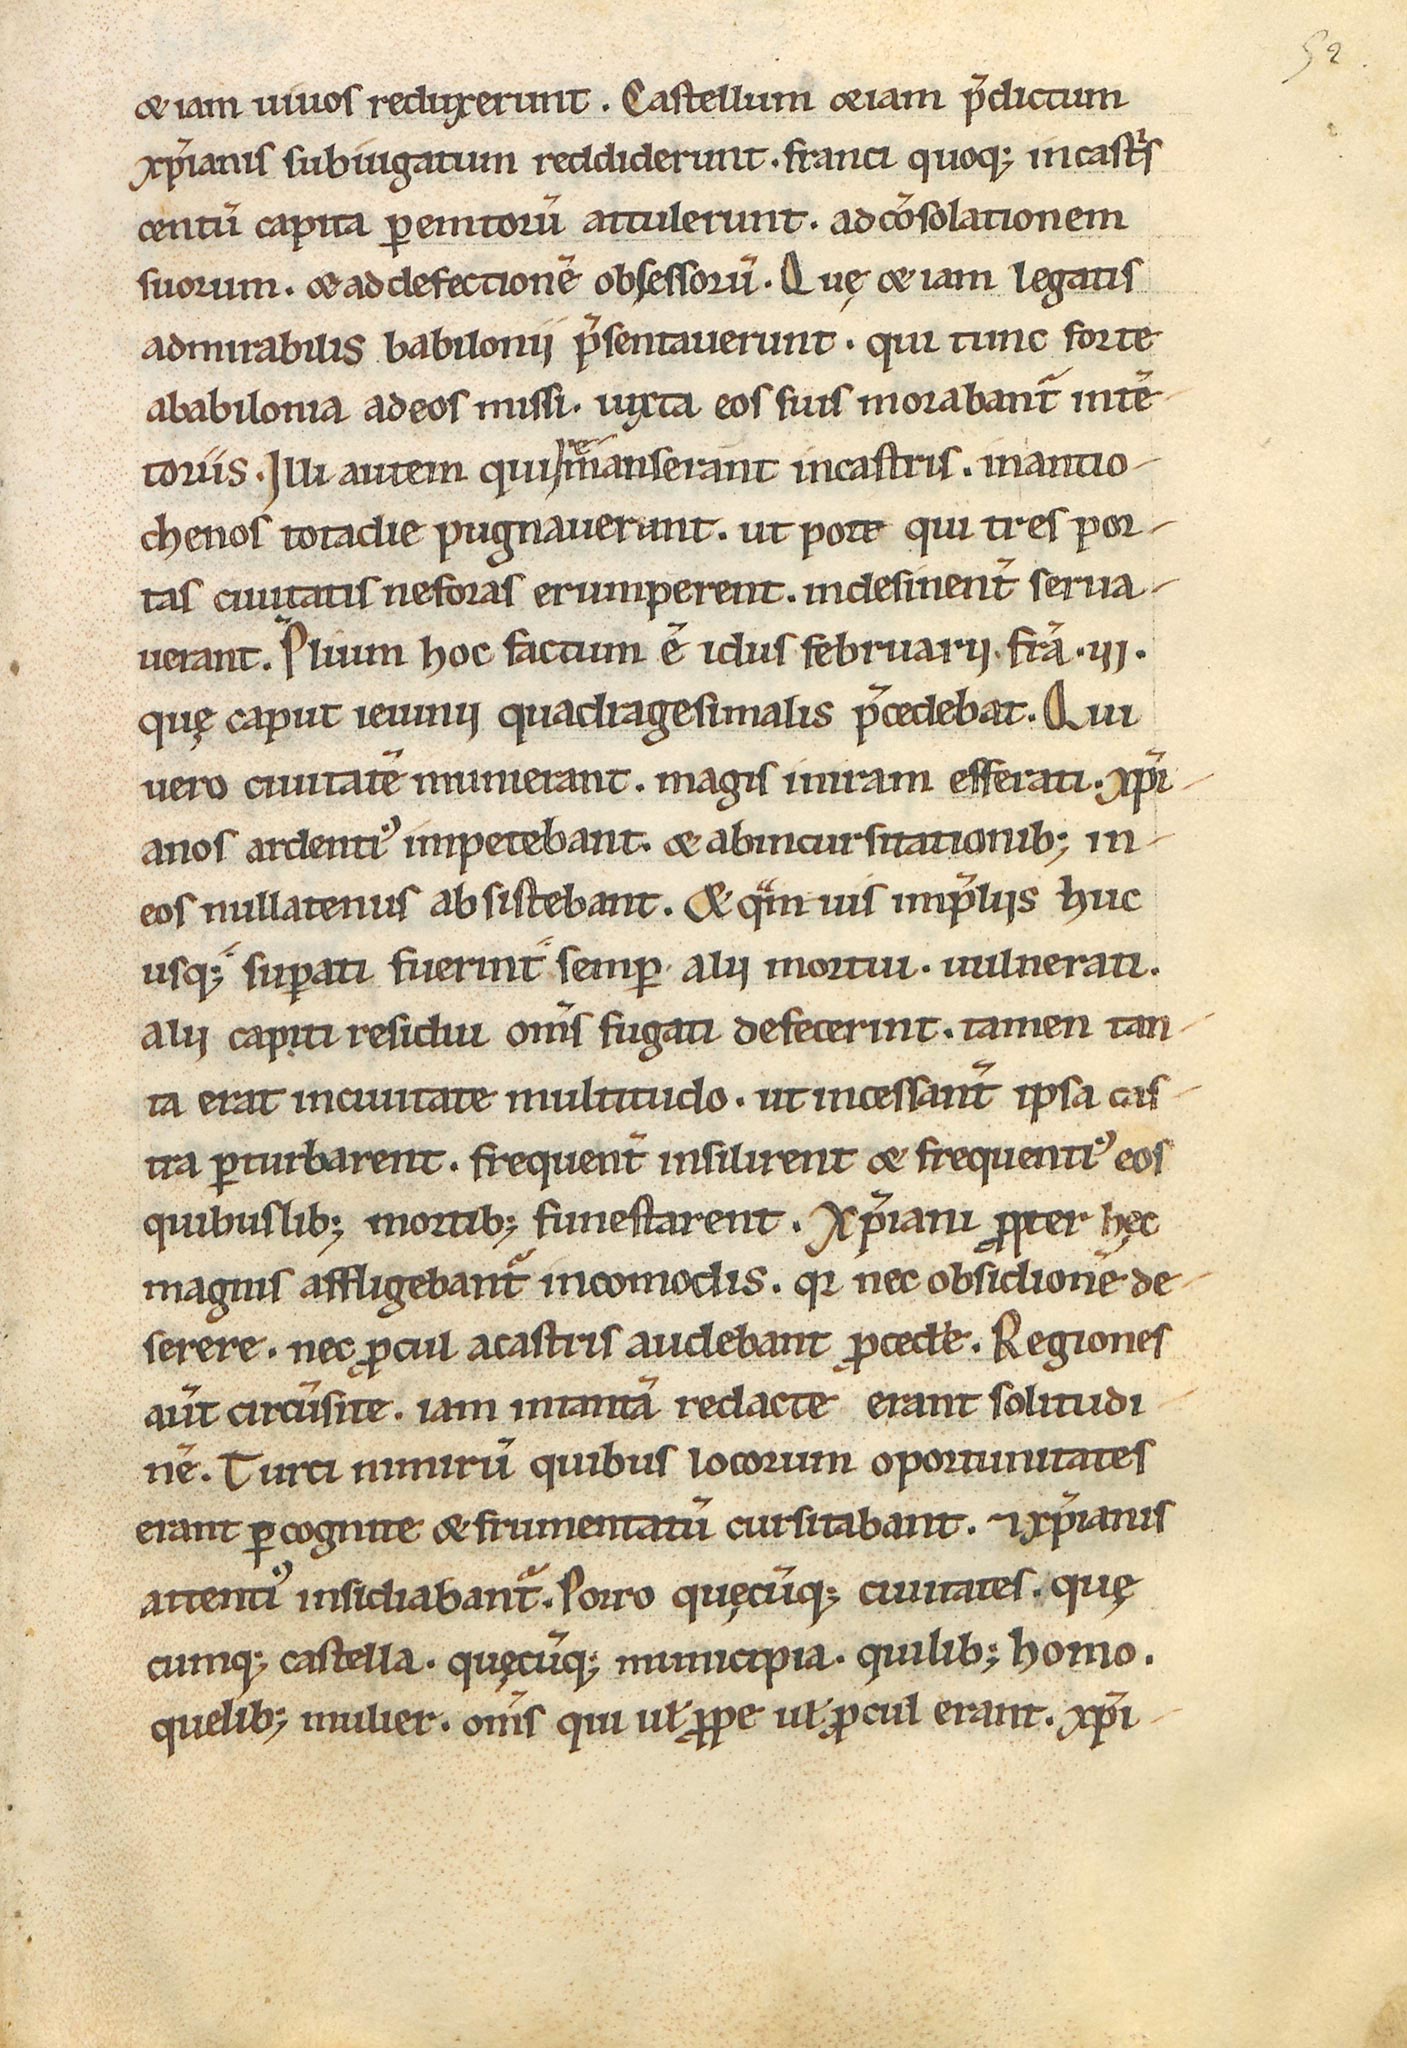 52
& iam uiuos reduxerunt. Castellum &iam p̄dictum
xp̄ianis subiugatum reddiderunt. franci quoq; incastr̄s
centū capita p̱emtorū attulerunt. adcōsolationem
suorum. & addefectionē obsessorū. Quę & iam legatis
admirabilis babilonij p̄sentauerunt. qui tunc forte
ababilonia adeos missi. iuxta eos suis morabant᷑ intē-
toriis. Illi autem qui remanserant incastris. inantio-
chenos totadie pugnauerunt. ut pote qui tres por-
tas ciuitatis neforas erumperent. indesinent̄ serua-
uerant. P̄lium hoc factum ē idus februarij. fr̄a .iij.
quę caput ieiunij quadragesimalis p̄cedebat. Qui
uero ciuitatē munierant. magis iniram efferati. xp̄i-
anos ardenti᷒ impetebant. & abincursitationib; in-
eos nullatenus absistebant. & qͣm uis imp̄lijs huc
usq; sup̱ati fuerint semp̱ alij mortui. uulnerati.
alij capiti residui om̄s fugati defecerint. tamen tan-
ta erat inciuitate multitudo. ut incessant̄ ipsa cas-
tra p̱turbarent. frequent̄ insilirent & frequenti᷒ eos
quibuslib; mortib; funestarent. Xp̄iani ꝓpter hęc
magnis affligebant᷑ incomodis. qr nec obsidionē de-
serere. nec ꝓcul acastris audebant ꝓcede̓. Regiones
aūt circūsite. iam intantā redacte erant solitudi-
nē. Turci nimirū quibus locorum oportunitates
erant p̱cognite & frumentatū cursitabant. ⁊xp̄ianis
attenti᷒ insidiabant᷑. Porro quęcūq; ciuitates. quę
cumq; castella. quęcūq; municipia. quilib; homo.
quelib; mulier. om̄s qui ul̄ ꝓpe ul̄ ꝓcul erant. xp̄i-